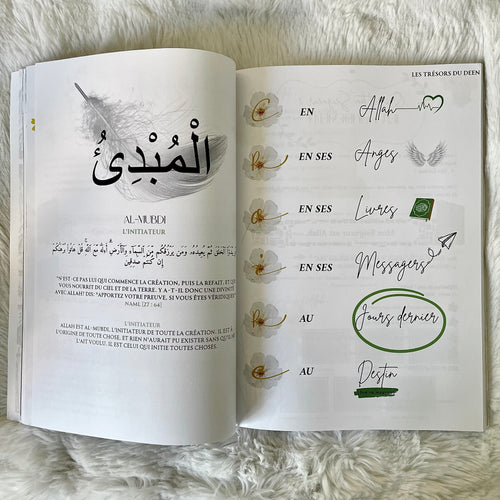 الْمُبْدِئُ
AL-MUBDI
L'INITIATEUR
يَبْدَؤُا۟ ٱلْخَلْقَ ثُمَّ يُعِيدُهُۥ وَمَن يَرْزُقُكُم مِّنَ ٱلسَّمَآءِ وَٱلْأَرْضِ أَءِلَٰهٌ مَّعَ ٱللَّهِ قُلْ هَاتُوا۟ بُرْهَٰنَكُمْ
إِن كُنتُمْ صَٰدِقِينَ
"N'EST-CE PAS LUI QUI COMMENCE LA CRÉATION, PUIS LA REFAIT, ET QUI
VOUS NOURRIT DU CIEL ET DE LA TERRE. Y A-T-IL DONC UNE DIVINITÉ
AVEC ALLAH? DIS: "APPORTEZ VOTRE PREUVE, SI VOUS ÊTES VÉRIDIQUES"
NAML [27 : 64]
L'INITIATEUR
ALLAH EST AL-MUBDI, L'INITIATEUR DE TOUTE LA CRÉATION. IL EST À
L'ORIGINE DE TOUTE CHOSE, ET RIEN N'AURAIT PU EXISTER SANS QU'IL NE
L'AIT VOULU. IL EST CELUI QUI INITIE TOUTES CHOSES.
LES TRÉSORS DU DEEN
EN Allah
EN SES Anges
EN SES Livres
EN SES Messagers
AU Jours dernier
AU Destin